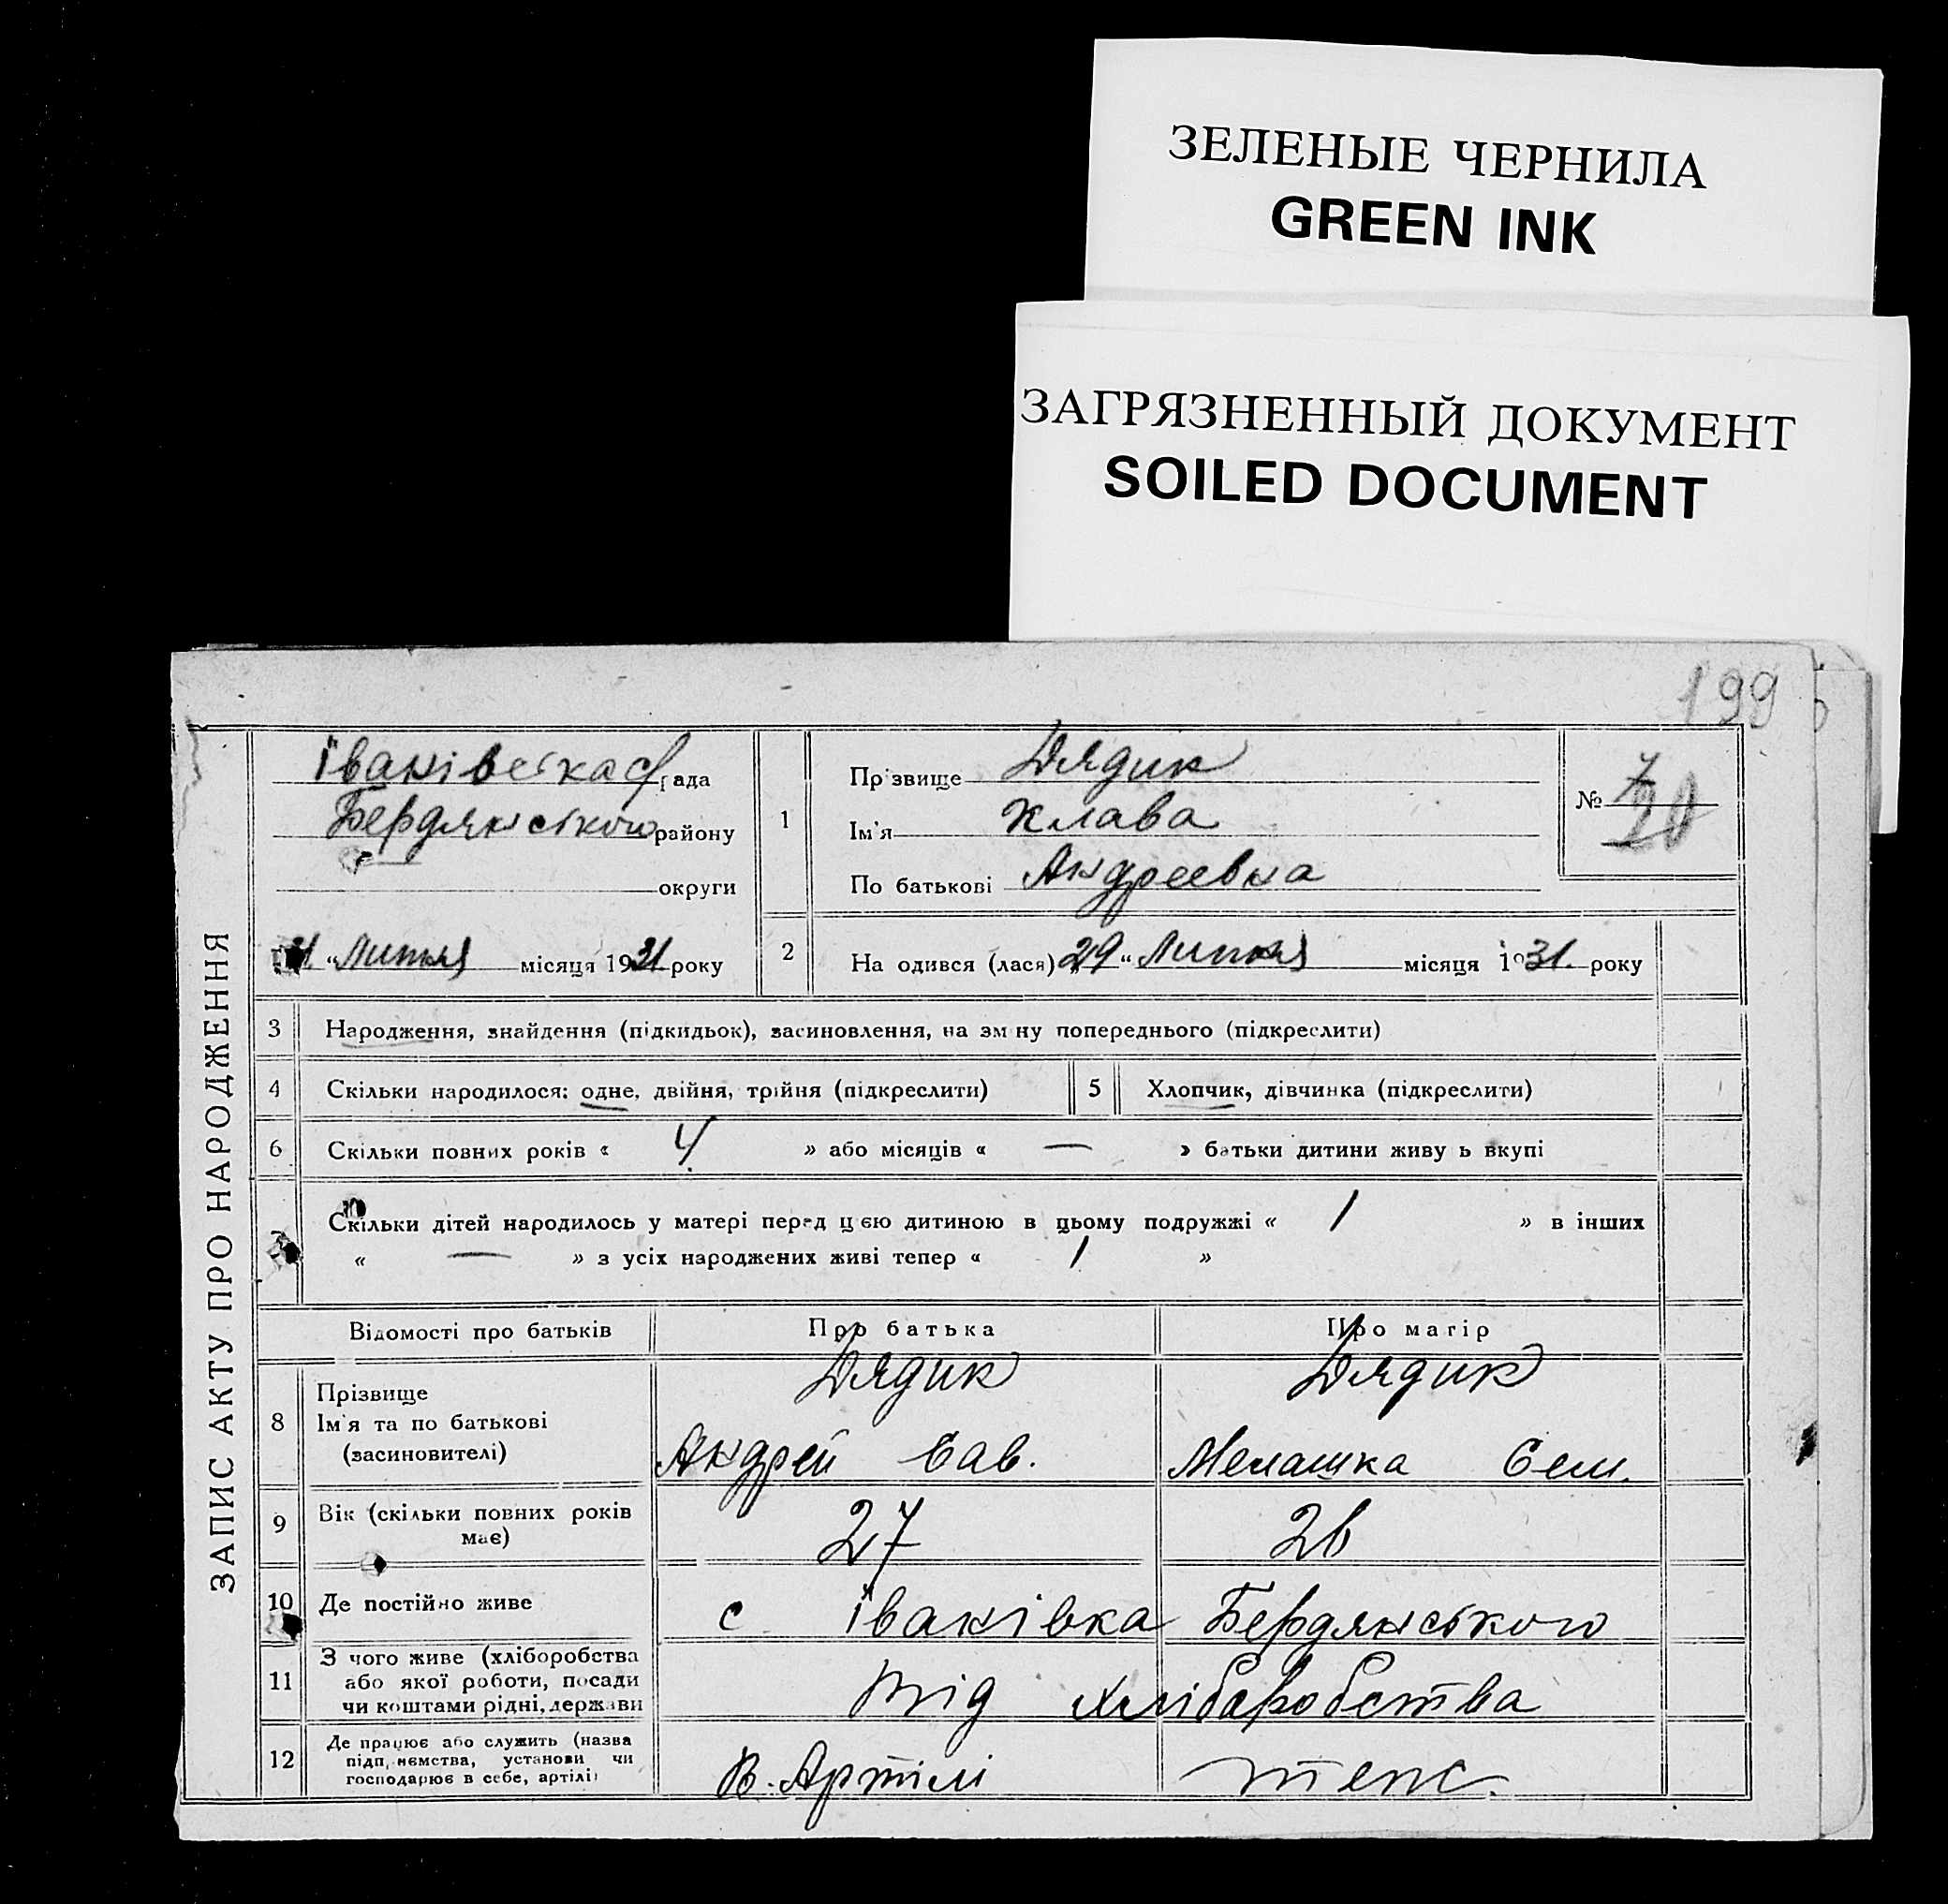 ЗЕЛЕНЫЕ ЧЕРНИЛА
GREEN INK
ЗАГРЯЗНЕННЫЙ ДОКУМЕНТ
SOILED DOCUMENT
199
ЗАПИС АКТУ ПРО НАРОДЖЕННЯ
Іванівська с/рада
Бердянського району
округи
31 "Липня місяця 1931 року
1
Прізвище Дядик
Ім'я Клава
По батькові Андреевна
№ 7
20
2
На одився (лася) 29 "Липня місяця 1931. року
3 Народження, знайдення (підкидьок), засиновлення, на зм ну попереднього (підкреслити)
4 Скільки народилося: одне, двійня, трійня (підкреслити)
5 Хлопчик, дівчинка (підкреслити)
6 Скільки повних років « 4 » або місяців « — » батьки дитини живу ь вкупі
7 Скільки дітей народилось у матері перед цєю дитиною в цьому подружжі « 1 » в інших
« — » з усіх народжених живі тепер « 1 »
Відомості про батьків Про батька Про матір
8 Прізвище Дядик Дядик
Ім'я та по батькові
(засновителі) Андрей Сав. Мелашка Сем.
9 Вік (скільки повних років
має) 27 26
10 Де постійно живе с Іванівка Бердянського
11 З чого живе (хліборобства
або якої роботи, посади
чи коштами рідні, держави від хліборобства
12 Де працює або служить (назва
підп,иємства, установи чи
господарює в себе, артілі) В. Артілі